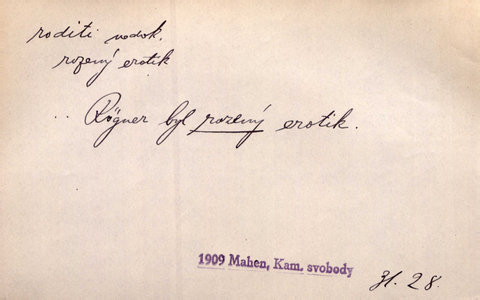 roditi nedok.
rozený erotik
.. Rögner byl rozený erotik.
1909 Mahen, Kam. svobody
31. 28.